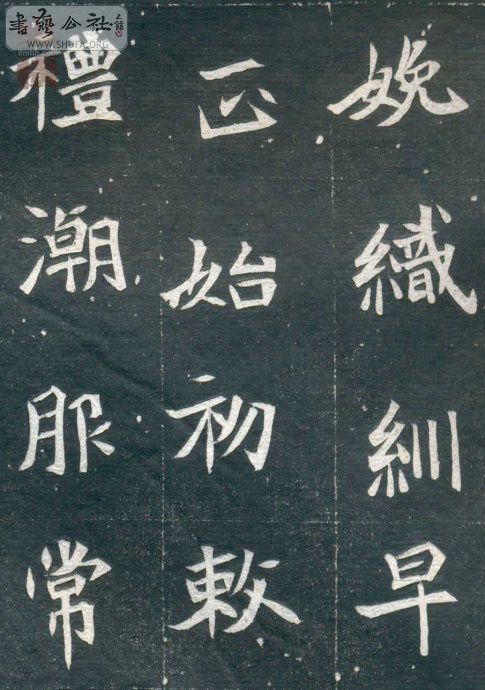 娩織紃早
正始初敕
禮潮服常
書藝公社
WWW.SHUFA.ORG